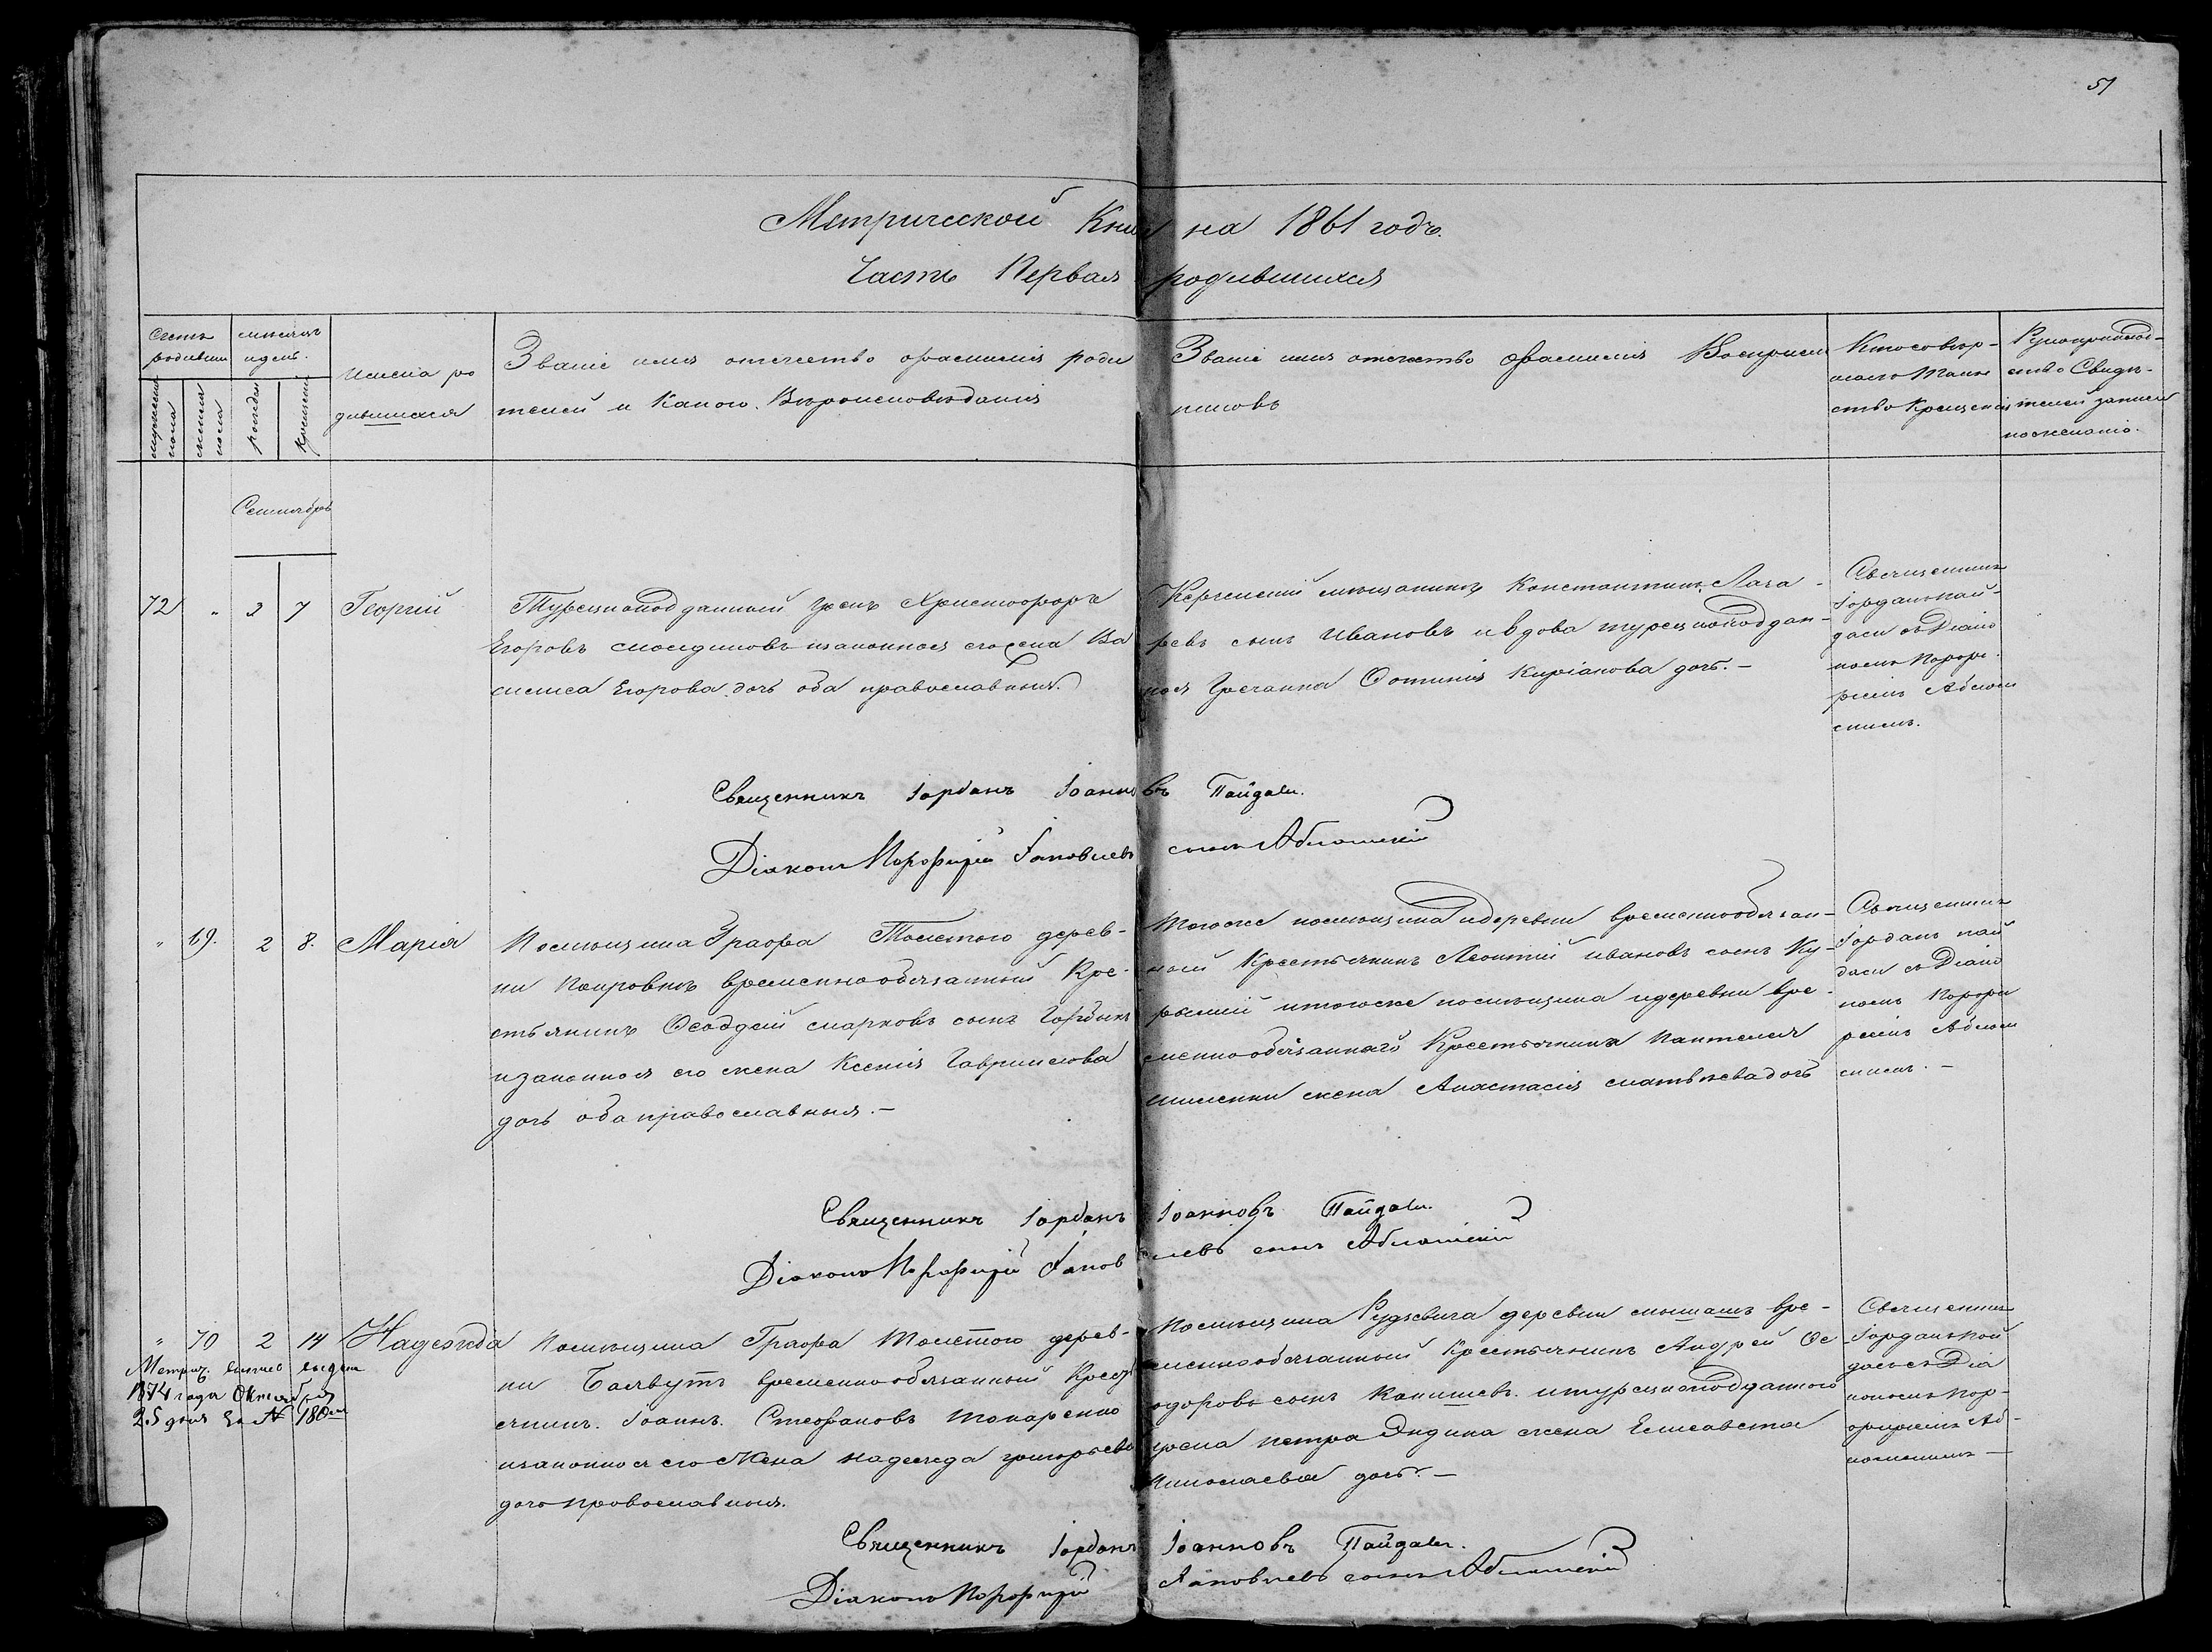 51
Метрической Книги на 1861 годъ.
Часть Первая родившихся
Счетъ родивши
мѣсяцъ и день.
мужескаго пола
женска пола
рожден
крещенія
Имена родившихся
Званіе имя отечество фамилія роди
телей и Какого Вѣроисповѣданія
Званіе имя отечество фамилія Восприем
никовъ
Кто совер-
шалъ Таин
ство Крещенія
Рукоприклад-
ство Свидѣ-
телей записи
по желанію.
Сентябрь
72 " 3 7 Георгій
Турецкоподданный Грекъ Христофоръ
Егоровъ и законная его жена Ва
силиса Егорова дочь оба православныя.
Керченскій мѣщанинъ Константинъ Лаза-
ревъ сынъ Ивановъ и вдова турецкоподдан-
ная Гречанка Фотинія Киріакова дочь.-
Священникъ
Іорданъ Пай-
дази съ Діако
номъ Порфи
ріемъ Аблош
скимъ.
Священникъ Іорданъ Іоанновъ Пайдази.
Діаконъ Порфирій Іаковлевъ сынъ Аблошскій
" 69. 2 8. Марія
Помѣщика Графа Толстого дерев-
ни Покровки временнообязанный Кре-
стьянинъ Фаддей Марковъ сынъ
и законная его жена Ксенія Гавриилова
дочь оба православныя.-
Тогоже помѣщика и деревни временнообязан-
ный Крестьянинъ Леонтій Ивановъ сынъ Ку-
и тогоже помѣщика и деревни вре-
меннообязаннаго Крестьянина Пантелея
жена Анастасія Матвѣева дочь
Священникъ
Іорданъ Пай
дази съ Діако
номъ Порфи
ріемъ Аблош
скимъ.-
Священникъ Іорданъ Іоанновъ Пайдази.
Діаконъ Порфирій Іаковлевъ сынъ Аблошскій
" 70 2 14 Надежда
Метрич. выпись выдана
1874 года Октября
25 дня за № 180
Помѣщика Графа Толстого дерев-
ни временнообязанный Крест
янинъ Іоаннъ Стефановъ Токаренко
и законная его Жена Надежда Григорьева
дочь православныя.
Помѣщика Рудзевича деревни вре-
меннообязанный Крестьянинъ Андрей Ѳе
одоровъ сынъ и турецкоподданного
грека Петра жена Елисавета
Николаева дочь.-
Священникъ
Іорданъ Пай
дазы съ Діа
кономъ Пор-
фиріемъ Аб-
лошскимъ-
Священникъ Іорданъ Іоанновъ Пайдази.
Діаконъ Порфирій Іаковлевъ сынъ Аблошскій